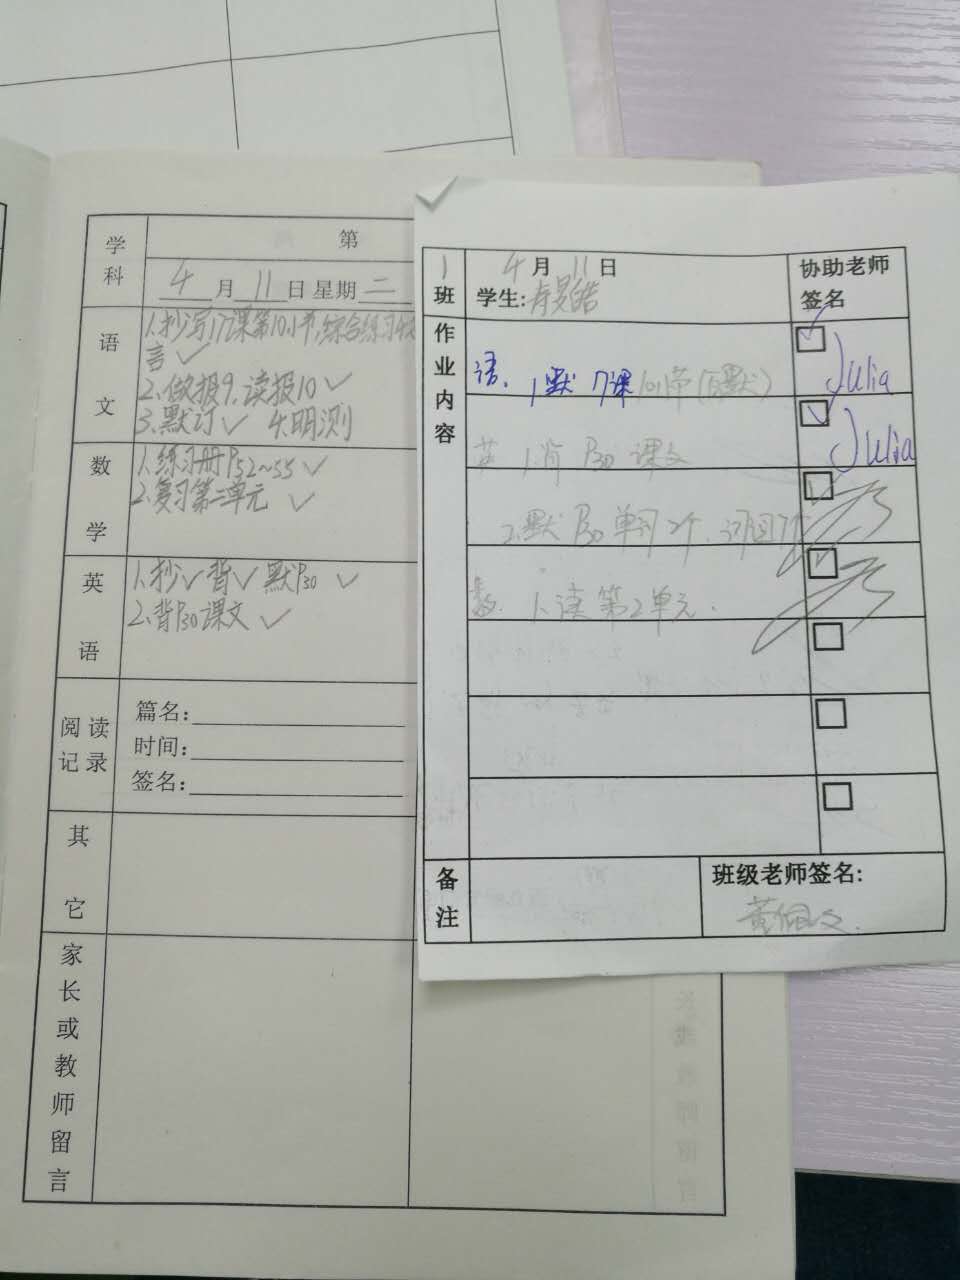 学科
第
4月11日 星期二
语文
1.抄写17课第10小节,综合练习
言 ✓
2.做报9.读报10 ✓
3.默订 ✓ 4.明测
数学
1.练习册P52~55 ✓
2.复习第二单元 ✓
英语
1.抄✓背✓默P30 ✓
2.背P30课文 ✓
阅读记录
篇名:
时间:
签名:
其它
家长或教师留言
1班
4月11日
学生:
协助老师签名
作业内容
语. 1.默 17课10小节
Julia
英 1.背 P30 课文
Julia
2.默 P30 单词
数. 1.读第2单元.
备注
班级老师签名:
长或教师留言